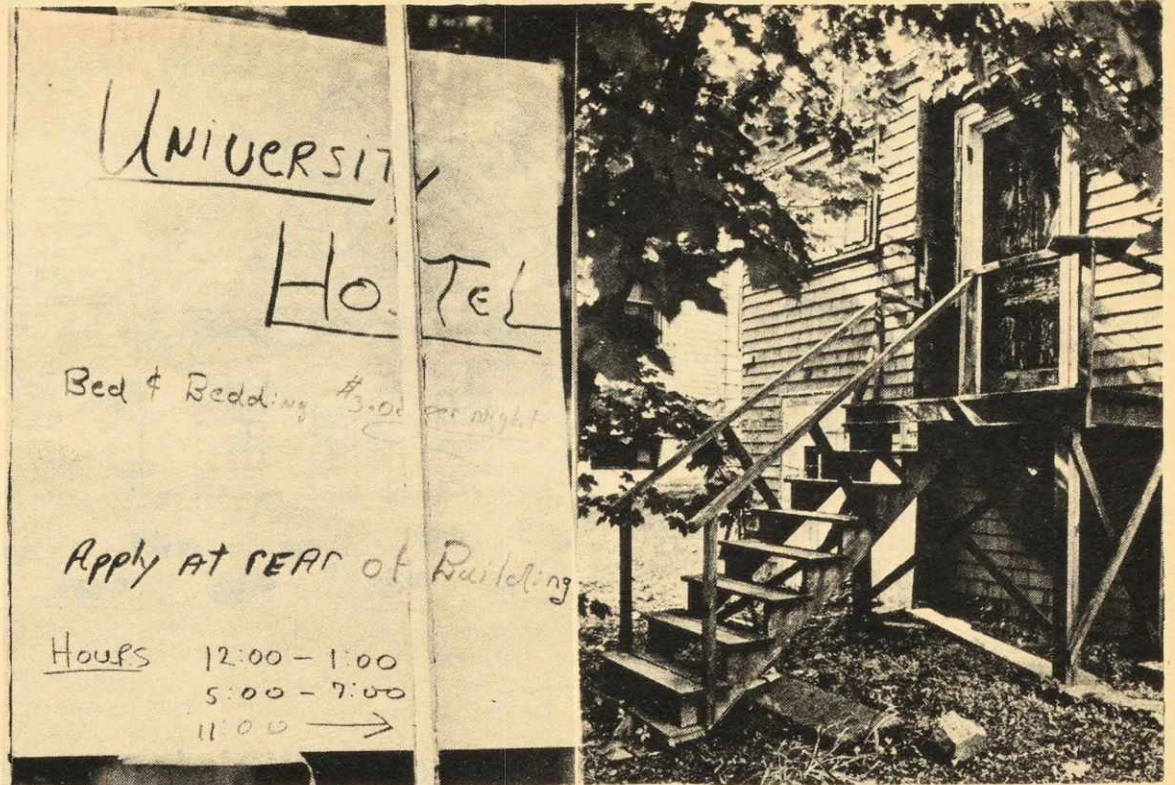 UNIVERSITY
HOSTEL
Bed & Bedding $3.00 per night
Apply AT reAr of Building
Hours 12:00 - 1:00
5:00 - 7:00
11:00 →